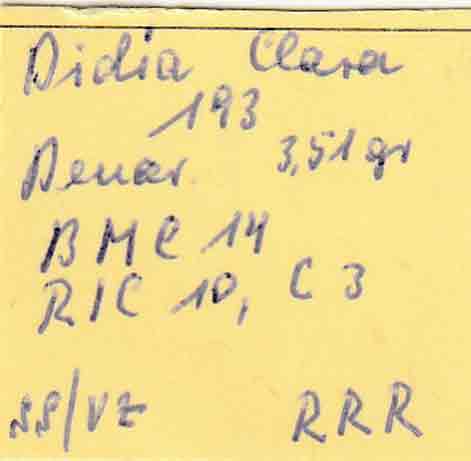 Didia Clara
193
Denar. 3,51 gr
BMC 14
RIC 10, C 3
ss/vz RRR